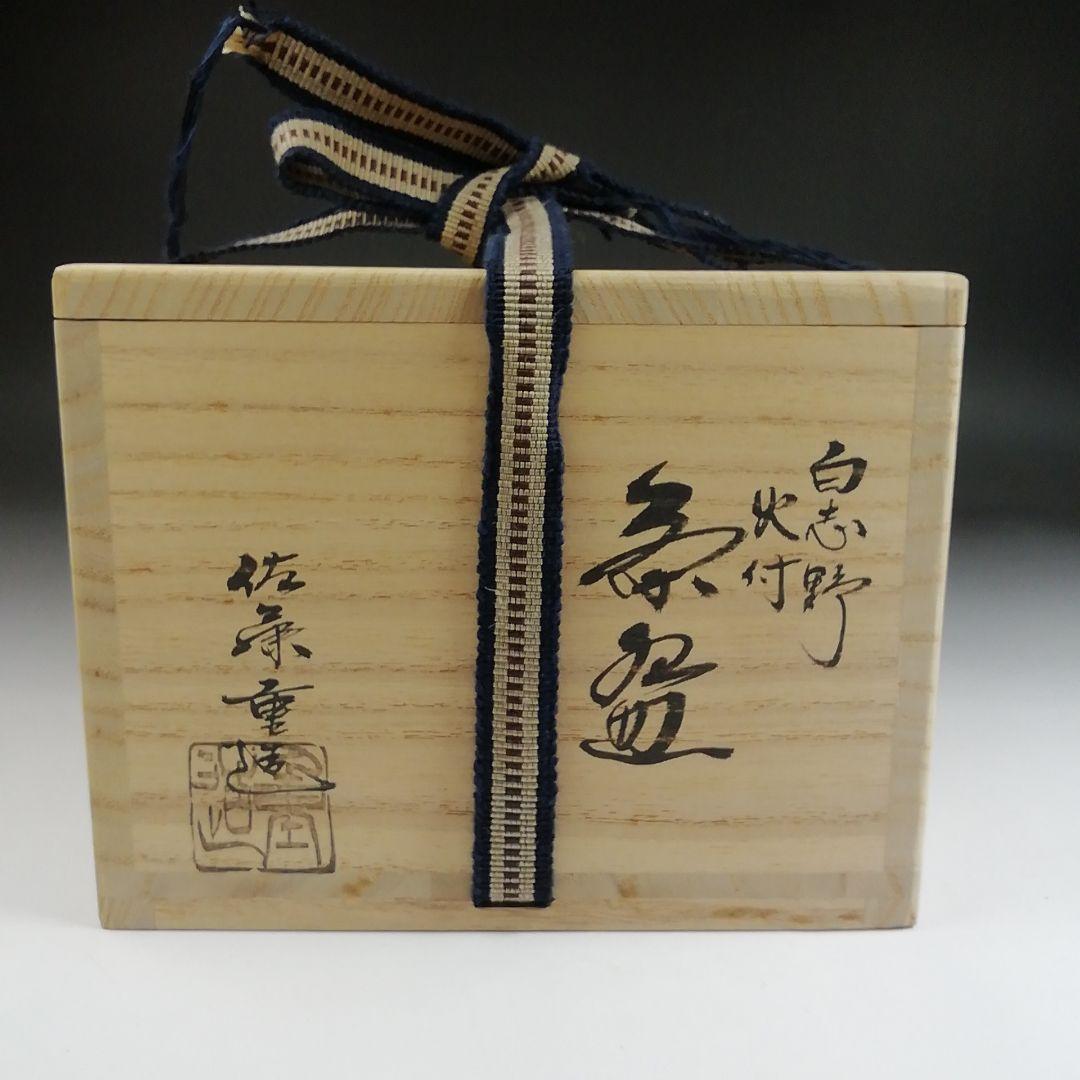 白志野
火付
茶盌
佐藤重造